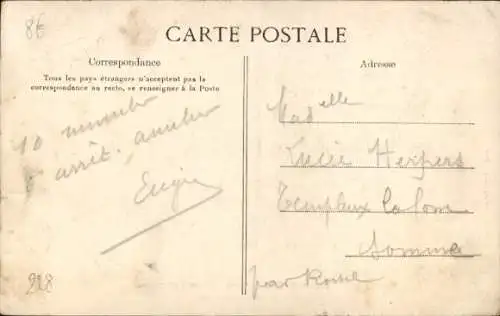 86
CARTE POSTALE
Correspondance
Tous les pays étrangers n'acceptent pas la
correspondance au recto, se renseigner à la Poste
10 minutes
d'arrêt.
Eugène
928
Adresse
Mad elle
Lucie Herpers
Templeux la
Somme
par Roisel